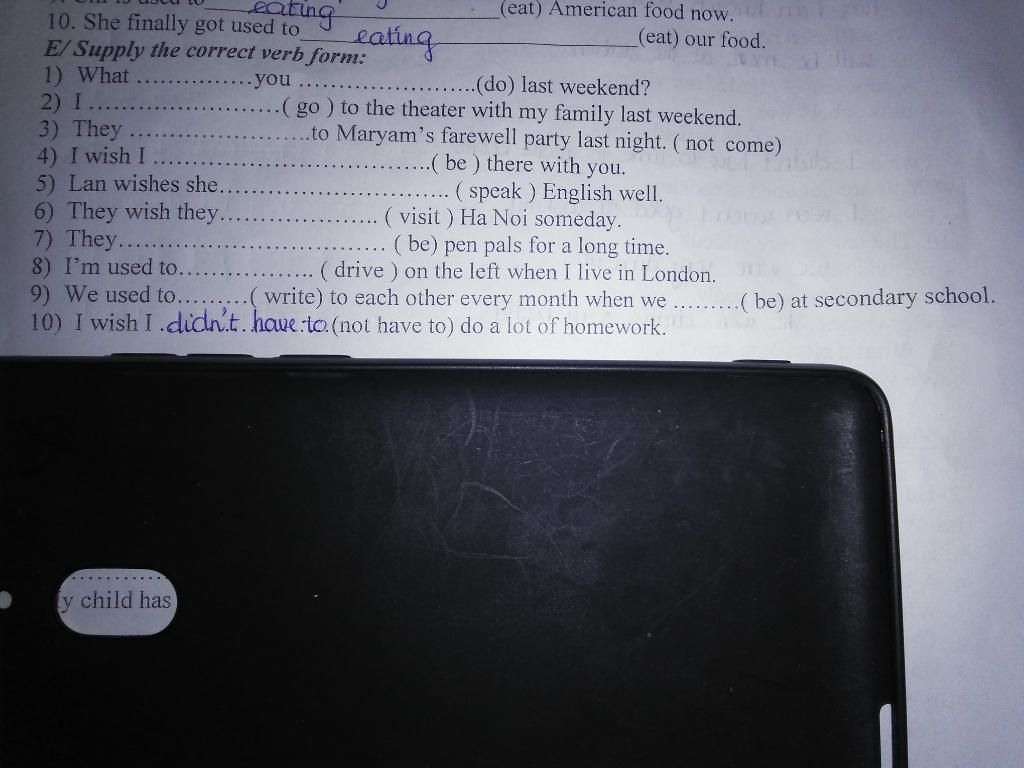 eating (eat) American food now.
10. She finally got used to eating (eat) our food.
E/ Supply the correct verb form:
1) What ...............you .......................(do) last weekend?
2) I .........................( go ) to the theater with my family last weekend.
3) They ........................to Maryam's farewell party last night. ( not come)
4) I wish I ....................................( be ) there with you.
5) Lan wishes she.............................. ( speak ) English well.
6) They wish they..................... ( visit ) Ha Noi someday.
7) They................................... ( be) pen pals for a long time.
8) I'm used to.................. ( drive ) on the left when I live in London.
9) We used to.........( write) to each other every month when we .........( be) at secondary school.
10) I wish I .didn't.have to.(not have to) do a lot of homework.
y child has